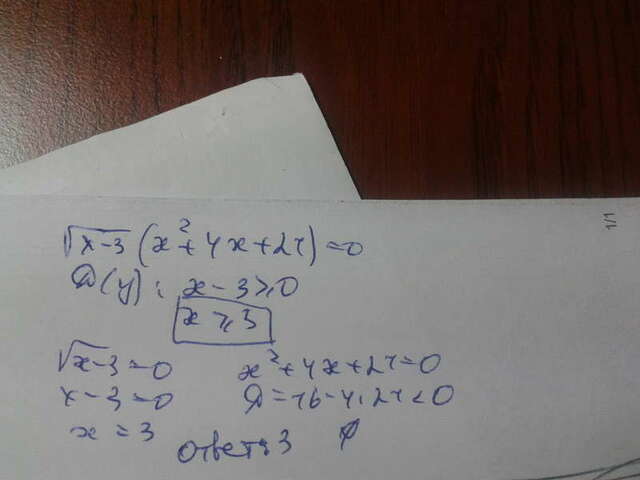 √x-3 (x²+4x+21)=0
D(y): x-3≥0
x≥3
√x-3=0    x²+4x+21=0
x-3=0    D=16-4·21<0
x=3    ∅
ответ: 3
1/1